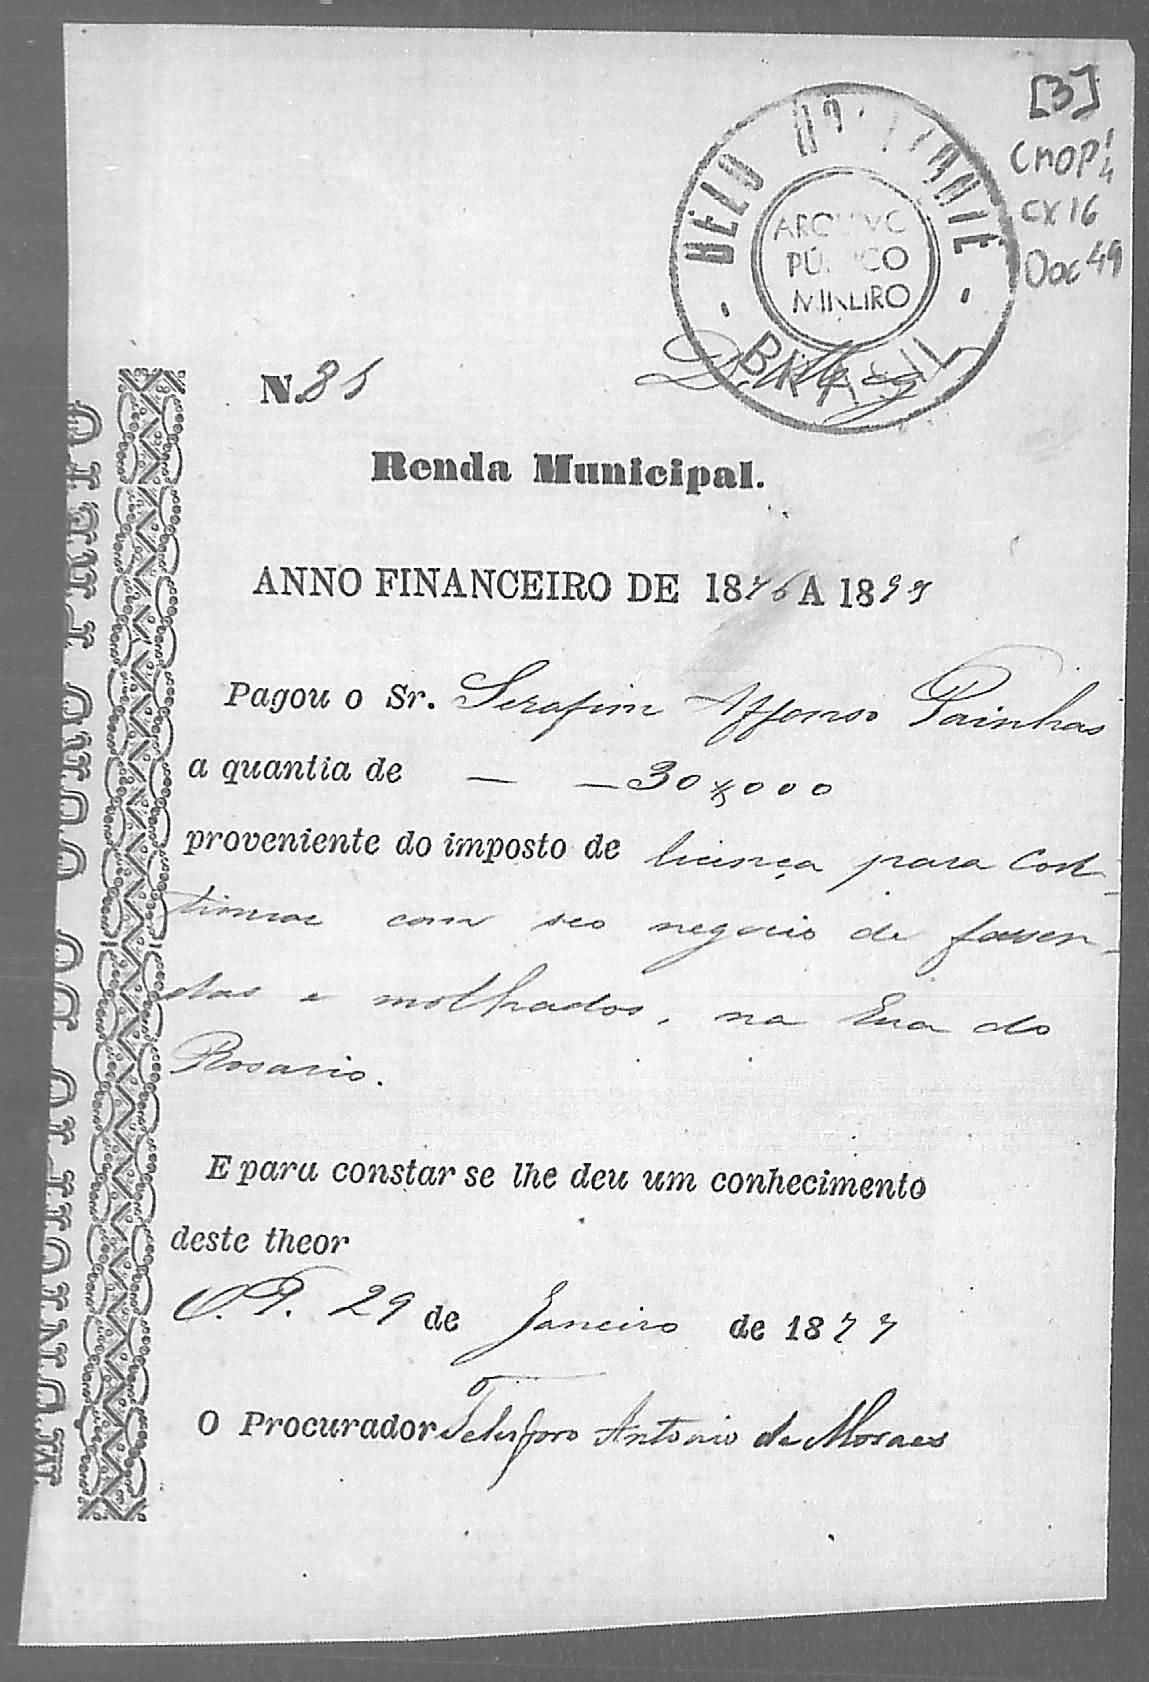 [3]
CMOP 1/4
CX 16
Doc 49
BELO HORIZONTE
ARQUIVO
PÚBLICO
MINEIRO
BRASIL
N. 35
Renda Municipal.
ANNO FINANCEIRO DE 1876 A 1877
Pagou o Sr. Serafim Affonso Painhas
a quantia de — — 30$000
proveniente do imposto de licença para Con-
tinuar com seo negocio de fasen-
das e molhados, na Rua do
Rosario.
E para constar se lhe deu um conhecimento
deste theor
O. P. 29 de Janeiro de 1877
O Procurador Telesforo Antonio de Moraes
MUNICIPIO DE OURO PRETO